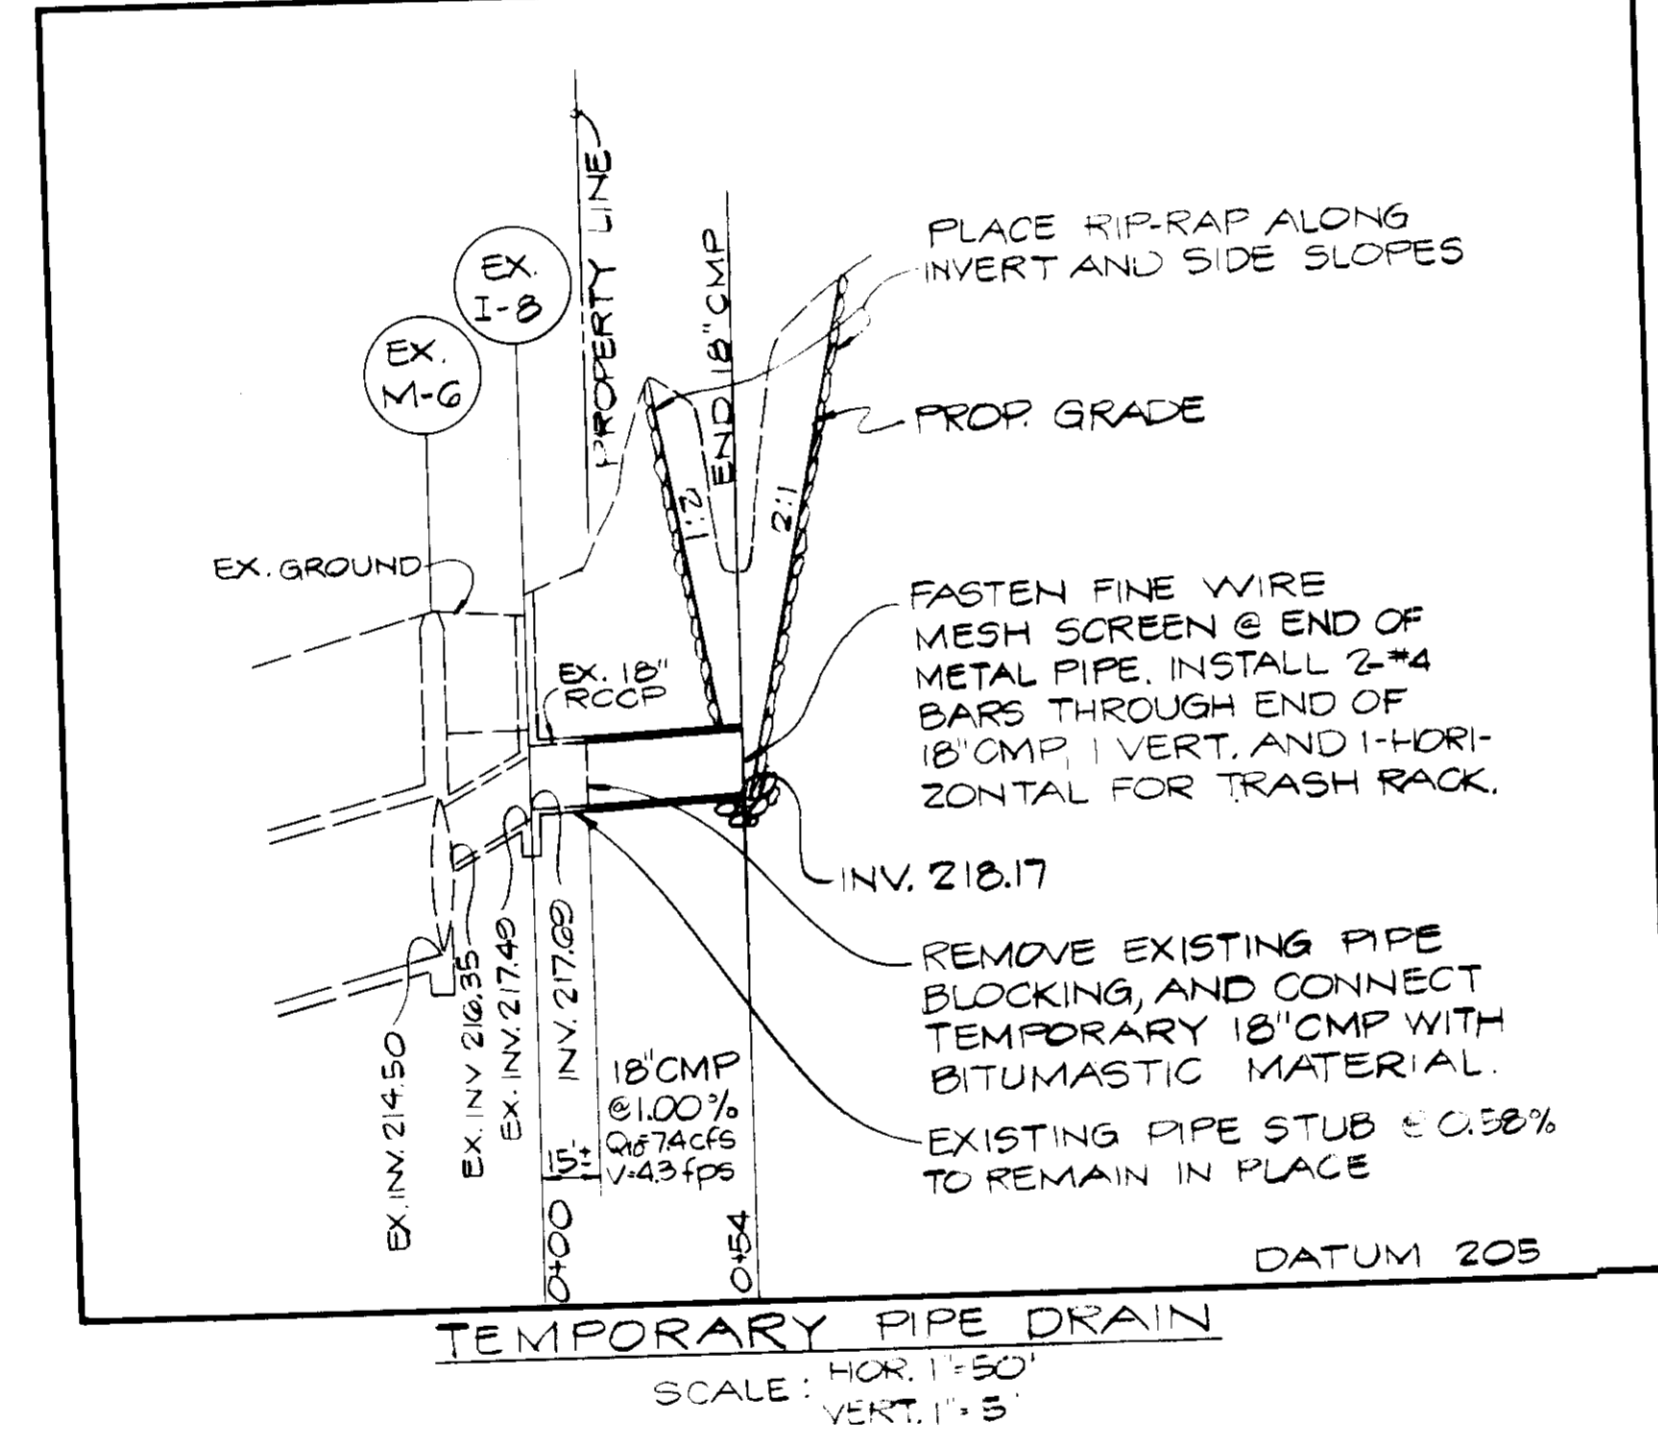 PROPERTY LINE
END 18" CMP
EX.
I-8
EX.
M-6
PLACE RIP-RAP ALONG
INVERT AND SIDE SLOPES
PROP. GRADE
1:2
2:1
EX. GROUND
EX. 18"
RCCP
FASTEN FINE WIRE
MESH SCREEN @ END OF
METAL PIPE. INSTALL 2-#4
BARS THROUGH END OF
18" CMP, 1 VERT. AND 1-HORI-
ZONTAL FOR TRASH RACK.
INV. 218.17
REMOVE EXISTING PIPE
BLOCKING, AND CONNECT
TEMPORARY 18" CMP WITH
BITUMASTIC MATERIAL.
EXISTING PIPE STUB @ 0.58%
TO REMAIN IN PLACE
EX. INV. 214.50
EX. INV 216.35
EX. INV. 217.49
INV. 217.69
18" CMP
@ 1.00%
Q10=7.4cfs
V=4.3 fps
15'±
0+00
0+54
DATUM 205
TEMPORARY PIPE DRAIN
SCALE: HOR. 1"=50'
VERT. 1"=5'